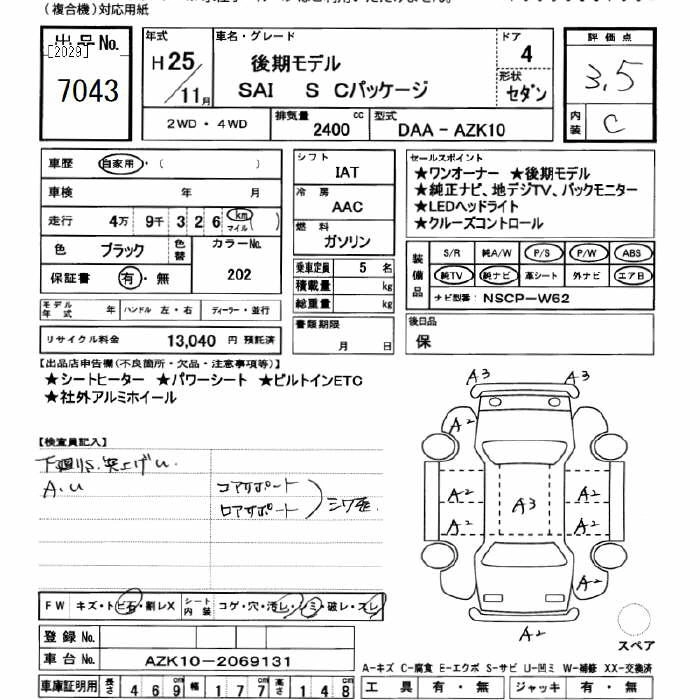 (複合機)対応用紙
出品No.
[2029]
7043
年式
H25/11月
車名・グレード
後期モデル
SAI S Cパッケージ
ドア
4
形状
セダン
評価点
3.5
内装
C
2WD・4WD
排気量
2400 cc
型式
DAA-AZK10
車歴 自家用・( )
車検 年 月
走行 4万 9千 3 2 6 km マイル ( )
色 ブラック 色替 カラーNo.
保証書 有・無 202
モデル年式 年 ハンドル 左・右 ディーラー・並行
リサイクル料金 13,040 円 預託済
シフト
IAT
冷房
AAC
燃料
ガソリン
乗車定員 5 名
積載量 kg
総重量 kg
書類期限
月 日
セールスポイント
★ワンオーナー ★後期モデル
★純正ナビ、地デジTV、バックモニター
★LEDヘッドライト
★クルーズコントロール
装備品
S/R 純A/W P/S P/W ABS
純TV 純ナビ 革シート 外ナビ エアB
ナビ型番: NSCP-W62
後日品
保
【出品店申告欄(不良箇所・欠品・注意事項等)】
★シートヒーター ★パワーシート ★ビルトインETC
★社外アルミホイール
【検査員記入】
下廻りS.突上げU.
A.U
コアサポート
ロアサポート
シワ
A3 A3
A2
A2 A2
A3
A2 A2
A2
A2
FW キズ・トビ石・割レX シート内装 コゲ・穴・汚レ・シミ・破レ・スレ
登録No.
車台No. AZK10-2069131
車庫証明用 長さ 4 6 9 cm 幅 1 7 7 cm 高さ 1 4 8 cm
スペア
A-キズ C-腐食 E-エクボ S-サビ U-凹ミ W-補修 XX-交換済
工具 有・無 ジャッキ 有・無